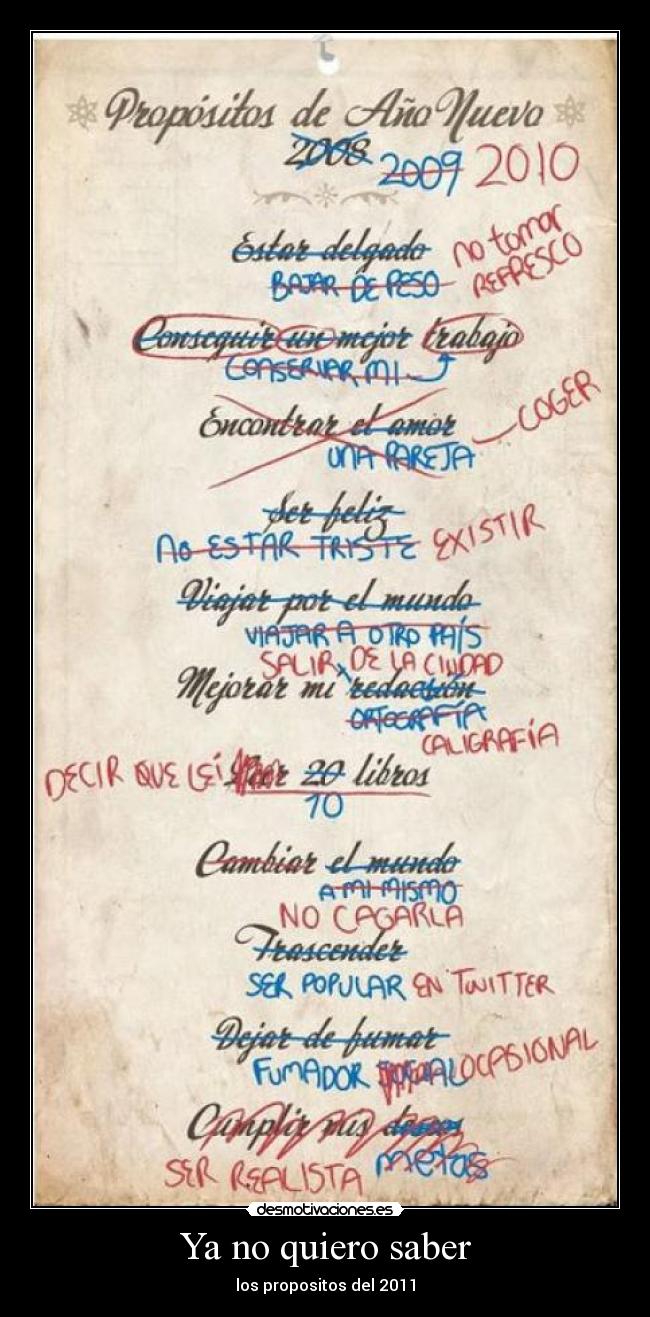 Propósitos de Año Nuevo
2008 2009 2010
Estar delgado no tomar
BAJAR DE PESO REFRESCO
Conseguir un mejor trabajo
CONSERVAR MI
Encontrar el amor COGER
UNA PAREJA
Ser feliz
NO ESTAR TRISTE EXISTIR
Viajar por el mundo
VIAJAR A OTRO PAÍS
SALIR DE LA CIUDAD
Mejorar mi redacción
ORTOGRAFÍA
CALIGRAFÍA
DECIR QUE LEÍ Leer 20 libros
10
Cambiar el mundo
A MI MISMO
NO CAGARLA
Trascender
SER POPULAR EN TWITTER
Dejar de fumar
FUMADOR SOCIAL OCASIONAL
Cumplir mis deseos
SER REALISTA metas
desmotivaciones.es
Ya no quiero saber
los propositos del 2011